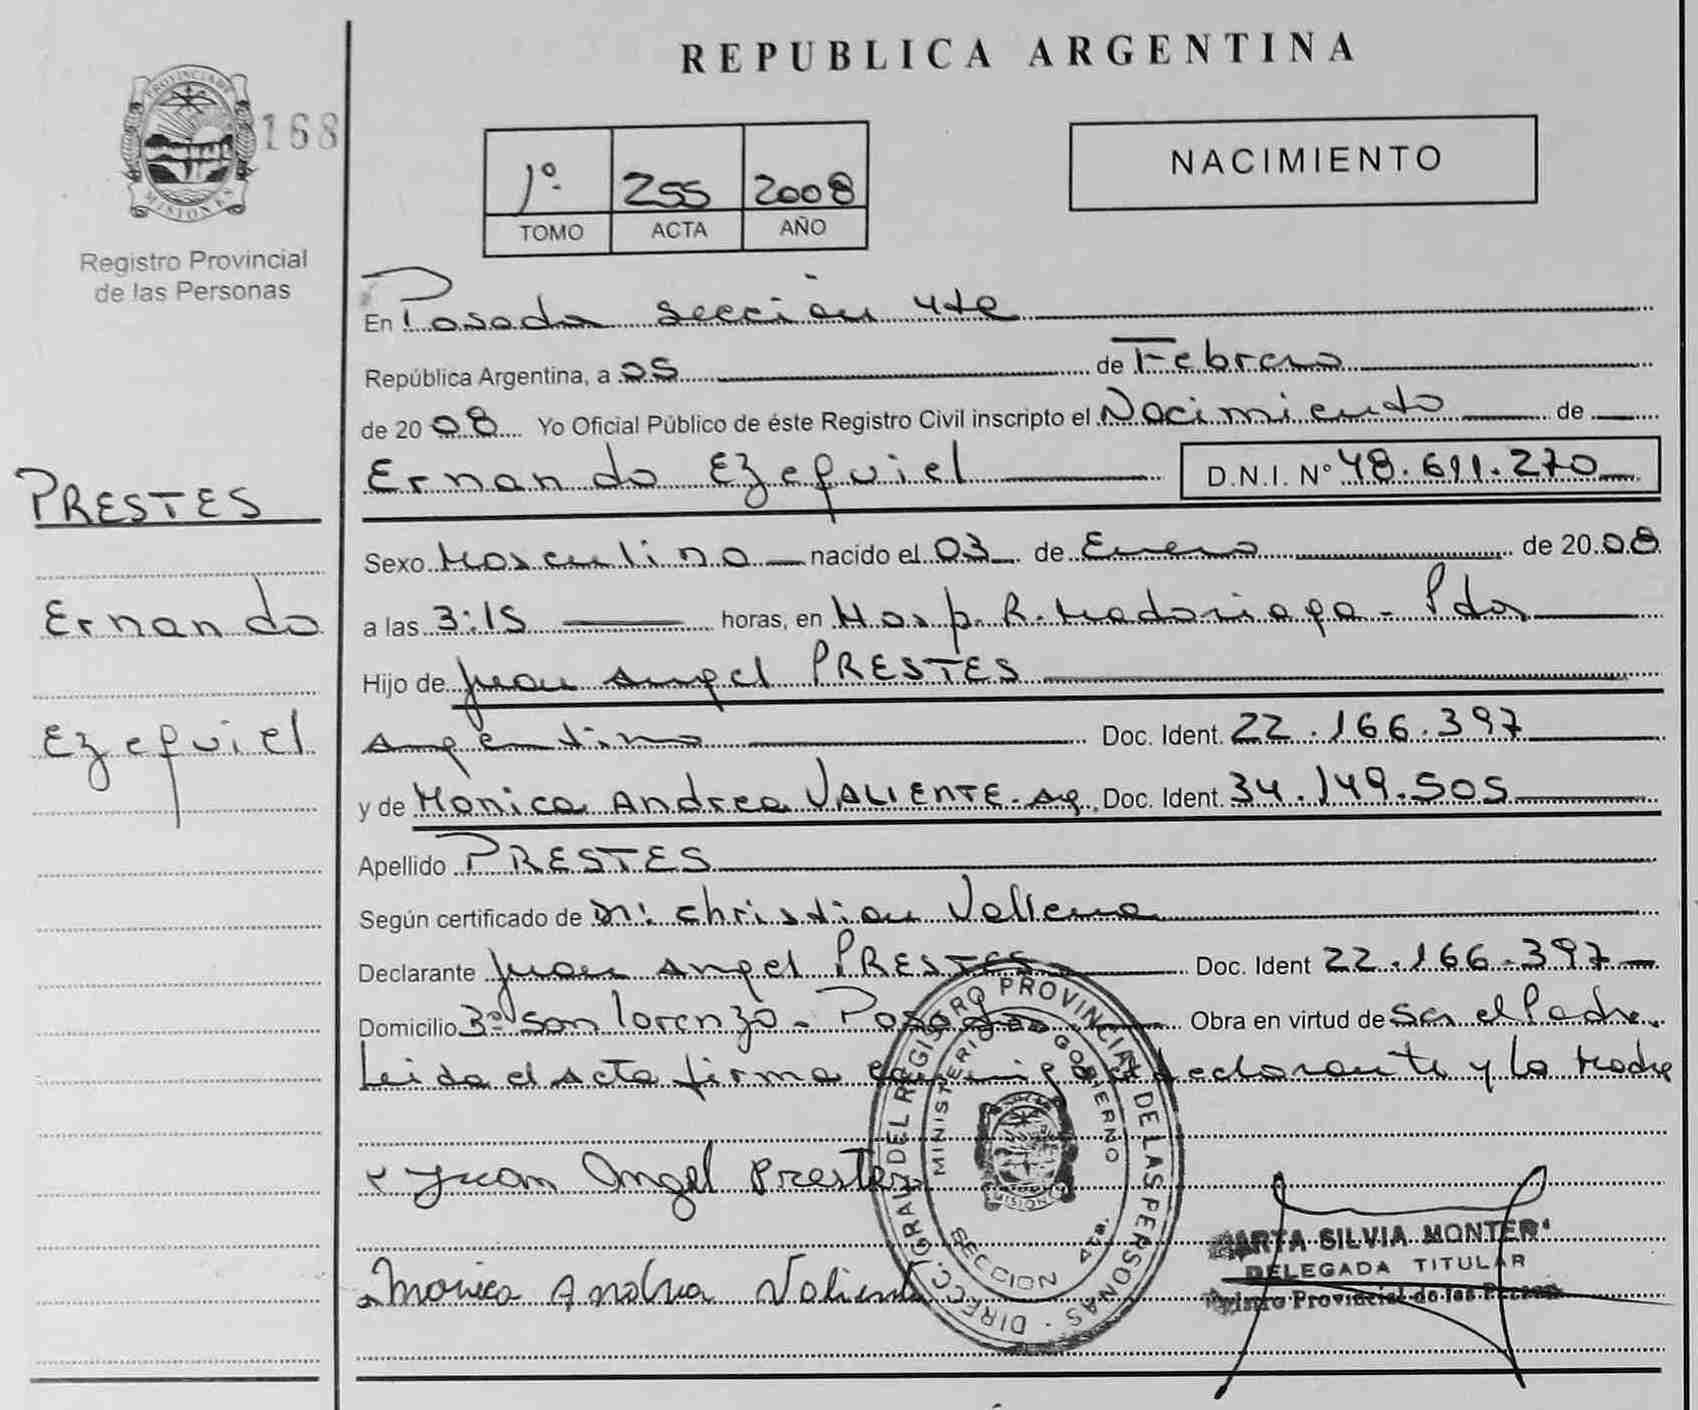 REPUBLICA ARGENTINA
PROVINCIA DE
MISIONES
168
Registro Provincial
de las Personas
1º 255 2008
TOMO ACTA AÑO
NACIMIENTO
En Posadas sección 4ta
República Argentina, a 05 de Febrero
de 2008 Yo Oficial Público de éste Registro Civil inscripto el Nacimiento de
Ernando Ezequiel D.N.I. Nº 48.611.270
PRESTES
Ernando
Ezequiel
Sexo Masculino nacido el 03 de Enero de 2008
a las 3:15 horas, en Hosp. R. Madariaga - Pdas
Hijo de Juan Angel PRESTES
Argentino Doc. Ident. 22.166.397
y de Monica Andrea VALIENTE - Ag. Doc. Ident. 34.149.505
Apellido PRESTES
Según certificado de Dr. Christian
Declarante Juan Angel PRESTES Doc. Ident 22.166.397
Domicilio San Lorenzo - Posadas Obra en virtud de Ser el Padre.
Leida el Acta firma conmigo el declarante y la Madre
Juan Angel Prestes
Monica Andrea Valiente
DIREC. GRAL. DEL REGISTRO PROVINCIAL DE LAS PERSONAS
MINISTERIO GOBIERNO
MISIONES
SECCION 4TA.
MARTA SILVIA MONTER
DELEGADA TITULAR
Registro Provincial de las Person